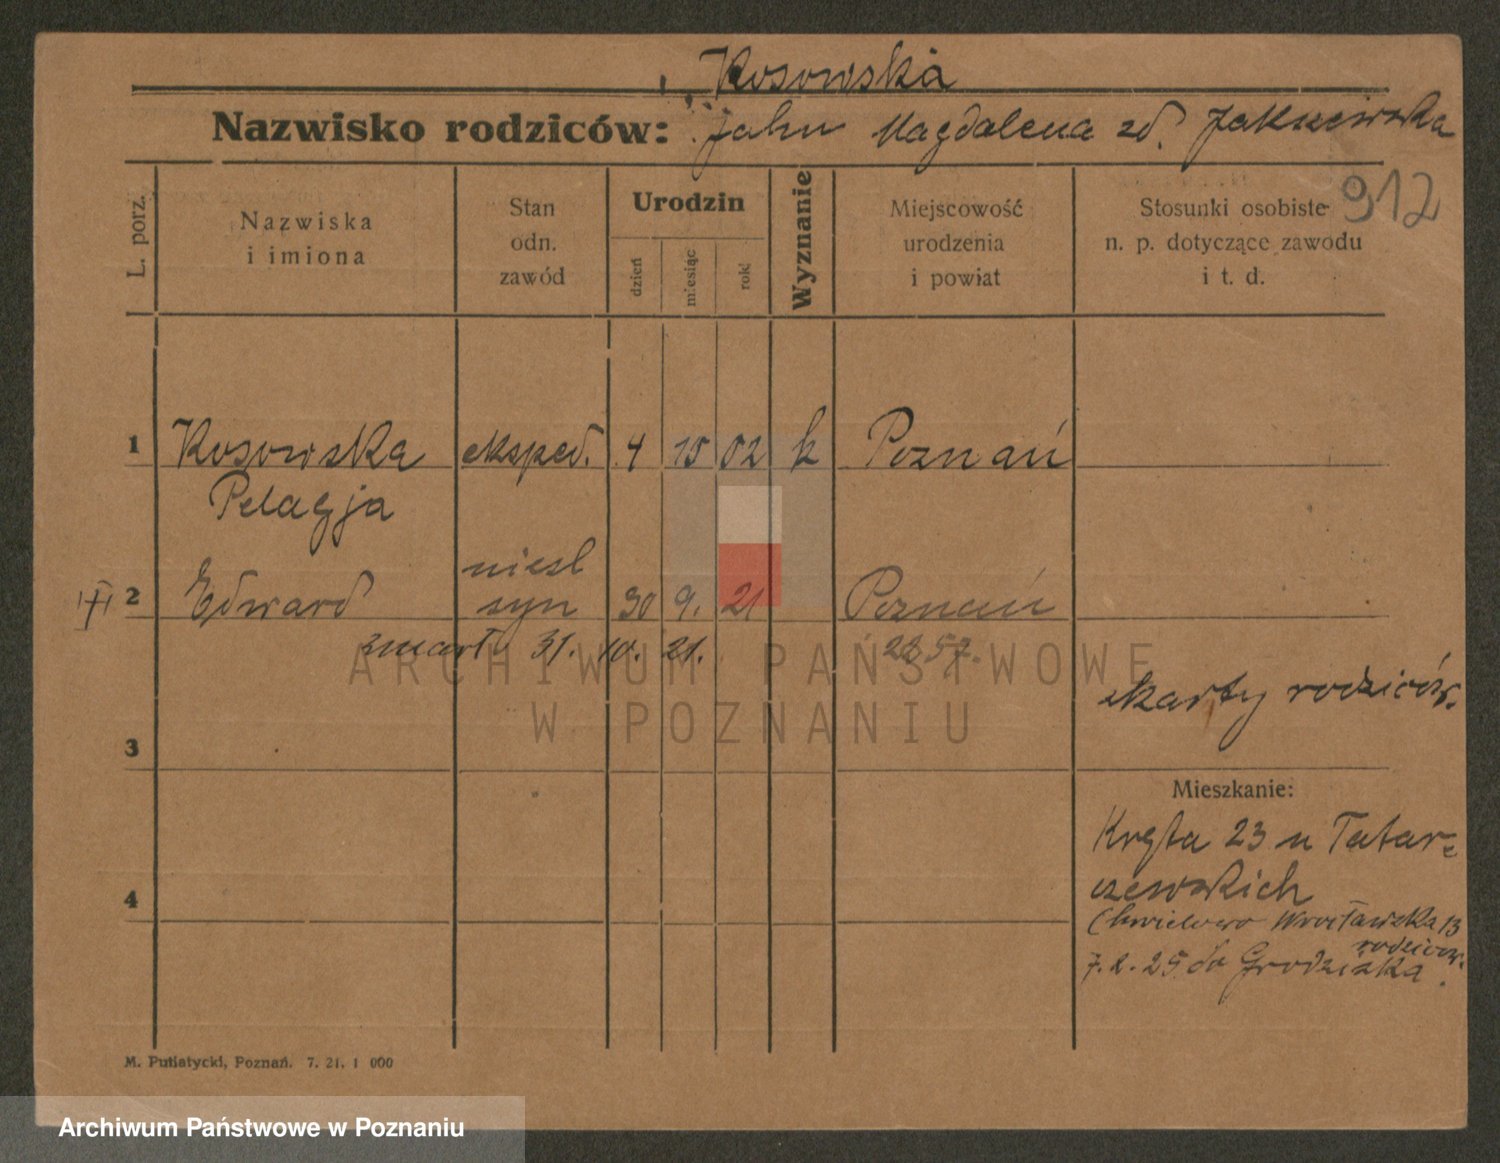 Kosowska
Nazwisko rodziców: Jahn Magdalena zd. Jakszewska
912
L. porz.
Nazwiska
i imiona
Stan
odn.
zawód
Urodzin
dzień
miesiąc
rok
Wyznanie
Miejscowość
urodzenia
i powiat
Stosunki osobiste
n. p. dotyczące zawodu
i t. d.
1 Kosowska eksped. 4 10 02 k Poznań
Pelagja
niesl
2 Edward syn 30 9. 21 Poznań
zmarł 31. 10. 21.
z karty rodziców.
3
Mieszkanie:
Kręta 23 u Tatar-
czewskich
4
Chwilowo Wrocławska 13
rodziców.
7. 2. 25 do Grodziska.
M. Putiatycki, Poznań. 7. 21. 1 000
ARCHIWUM PAŃSTWOWE
W POZNANIU
Archiwum Państwowe w Poznaniu